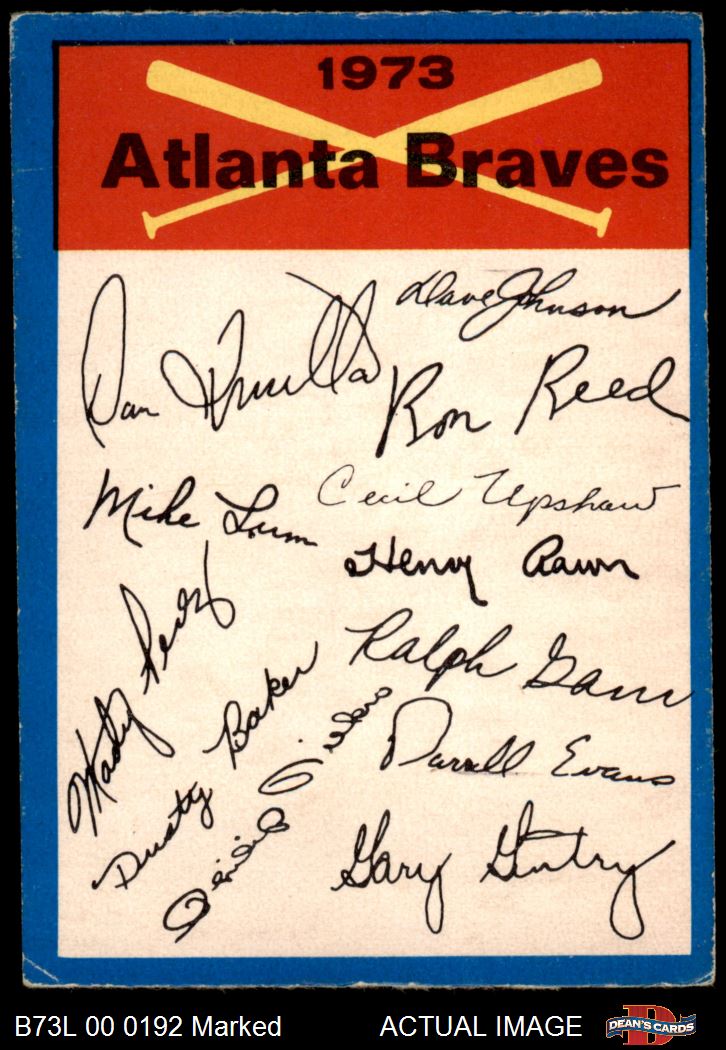 1973
Atlanta Braves
Dave Johnson
Ron Reed
Mike Lum
Cecil Upshaw
Henry Aaron
Marty Perez
Ralph Garr
Dusty Baker
Darrell Evans
Gary Gentry
B73L 00 0192 Marked
ACTUAL IMAGE
DEAN'S CARDS